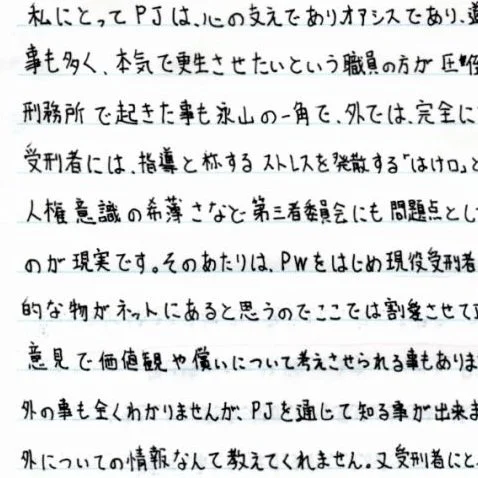 私にとってPJは、心の支えでありオアシスであり、道
事も多く、本気で更生させたいという職員の方が圧倒
刑務所で起きた事も氷山の一角で、外では、完全に
受刑者には、指導と称するストレスを発散する「はけ口」と
人権意識の希薄さなど第三者委員会にも問題点とし
のが現実です。そのあたりは、PWをはじめ現役受刑者
的な物がネットにあると思うのでここでは割愛させて
意見で価値観や償いについて考えさせられる事もありま
外の事も全くわかりませんが、PJを通じて知る事が出来ま
外についての情報なんて教えてくれません。又受刑者にと